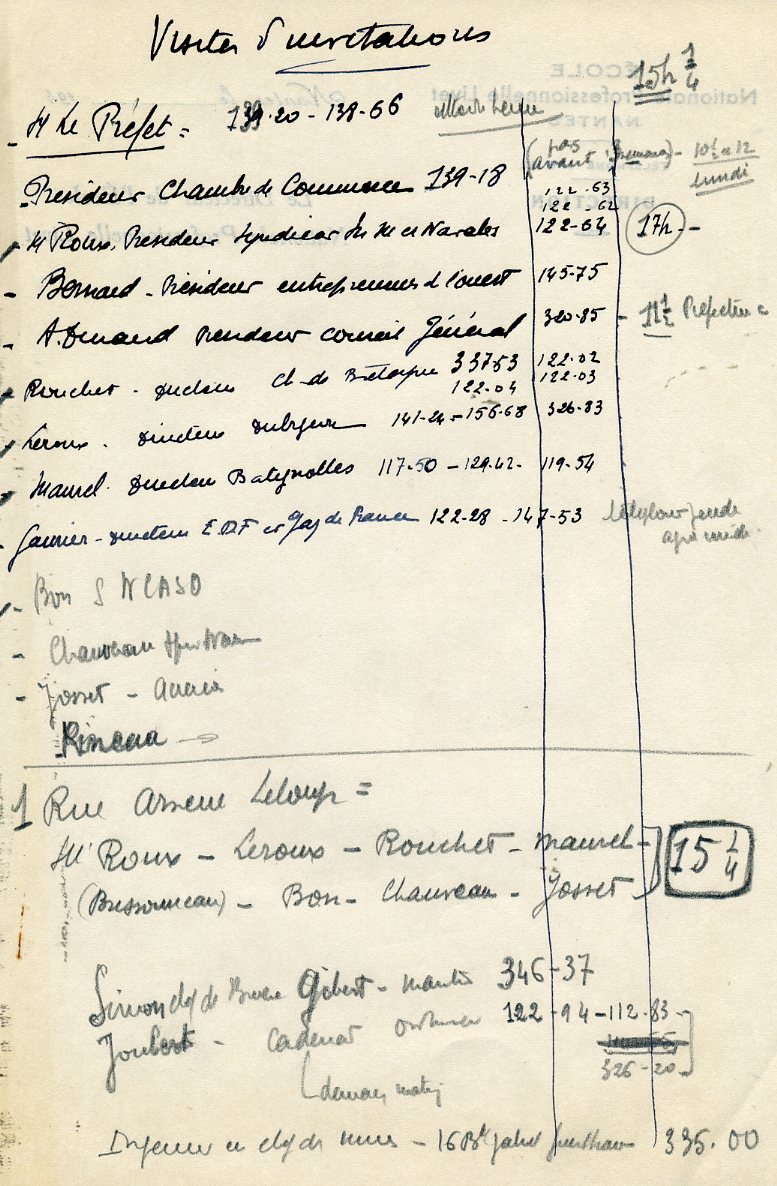 Visites d'invitations
15h 1/4
M Le Préfet = 139.20 - 138-66
(pas avant - 10h à 12
lundi
Président Chambre de Commerce 139-18
122.63
122-62
M Roux. Président Syndicat Ind Me et Navales 122-64 17h -
- Bernard - Président entrepreneurs de l'ouest 145-75
- A. Durand Président Conseil Général 320-85 - 11 1/2 Préfecture
Rouchet - directeur Ch. de Bretagne 33753 122.02
122.04 122.03
Leroux - directeur Dubigeon 141-24 - 156-68 326-83
Maurel - directeur Batignolles 117-50 - 129.42 - 119-54
Garnier - directeur E.D.F et Gaz de France 122-28 - 147-53
après midi
- Bon SNCASO
- Chauveau
- Josset - Aciérie
Rineau →
1 Rue Arsène Leloup =
MM Roux - Leroux - Rouchet - Maurel - 15 1/4
(Bessonneau) - Bon - Chauveau - Josset
Simon Gobert - 346-37
Joubert - Cadenat 122-94 - 112.83
326-20
Ingénieur en chef des mines - 16 Bd Gabriel Guisthau 335.00
ÉCOLE
Nationale Professionnelle Livet
NANTES
DIRECTION